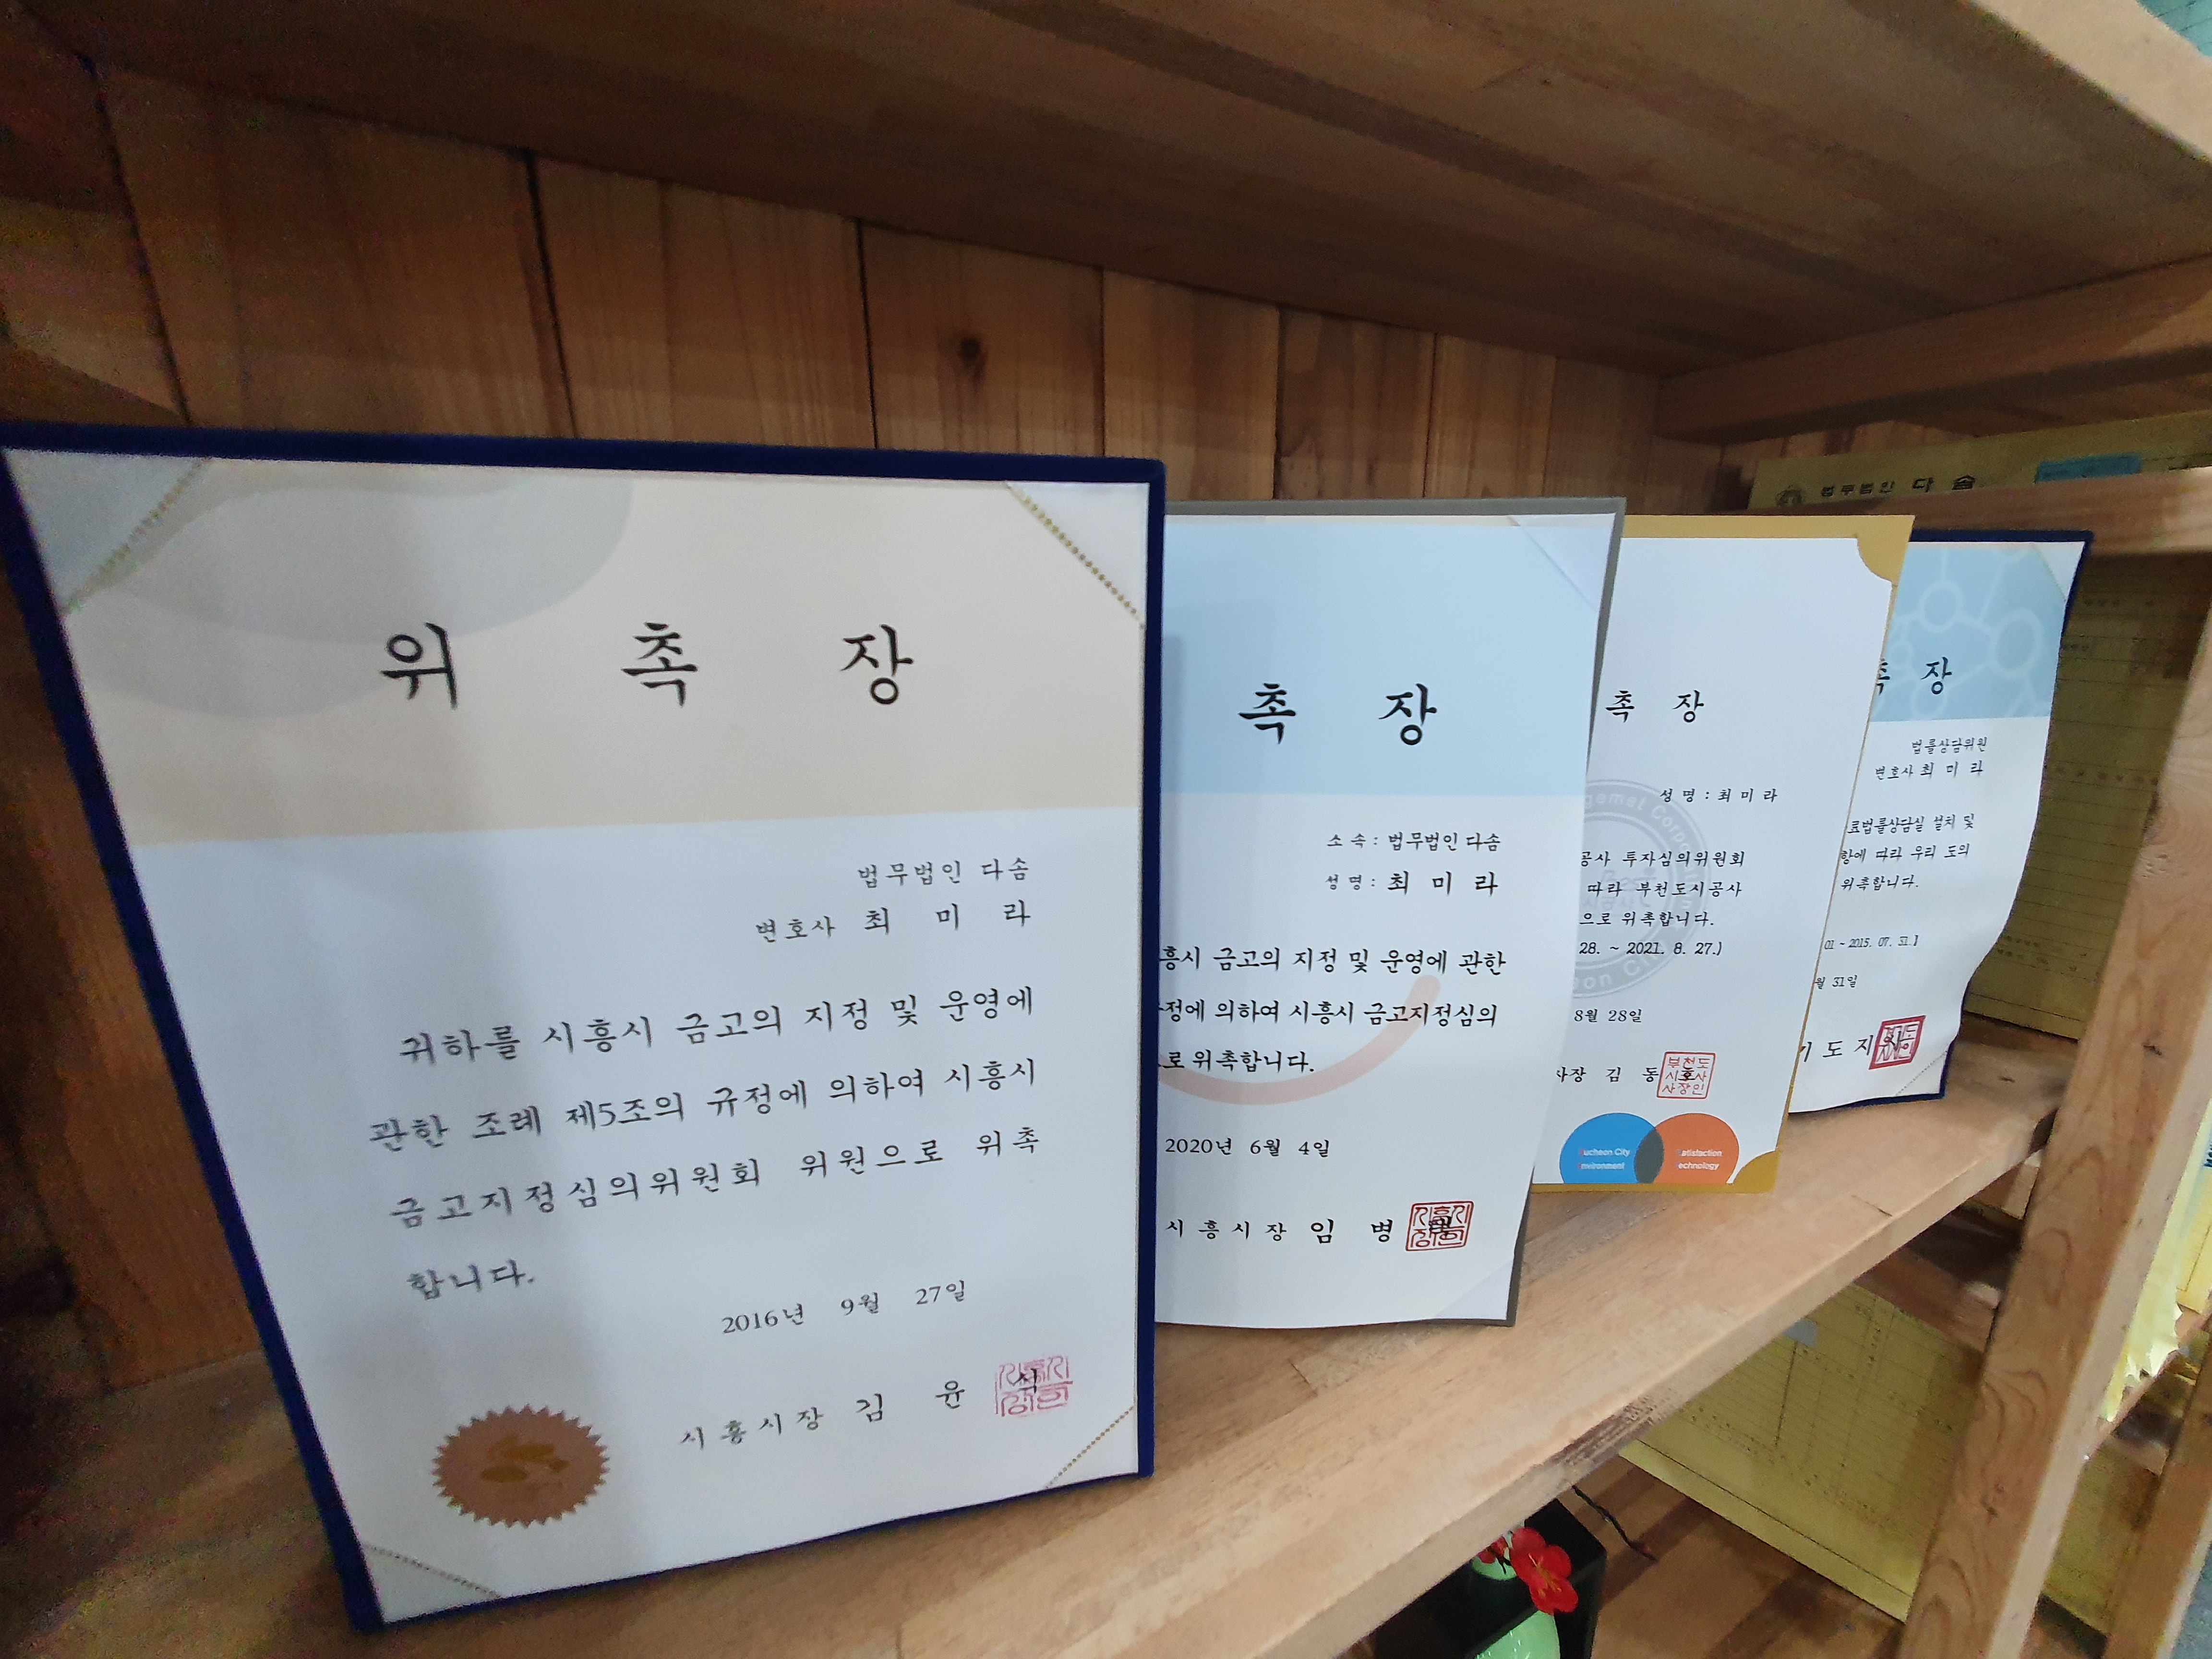 위 촉 장
법무법인 다솜
변호사 최 미 라
귀하를 시흥시 금고의 지정 및 운영에
관한 조례 제5조의 규정에 의하여 시흥시
금고지정심의위원회 위원으로 위촉
합니다.
2016년 9월 27일
시흥시장 김 윤 식
촉 장
소 속 : 법무법인 다솜
성 명 : 최 미 라
흥시 금고의 지정 및 운영에 관한
정에 의하여 시흥시 금고지정심의
로 위촉합니다.
2020년 6월 4일
시흥시장 임 병
촉 장
성 명 : 최 미 라
공사 투자심의위원회
따라 부천도시공사
으로 위촉합니다.
28. ~ 2021. 8. 27.)
8월 28일
사장 김 동
부천도
시공사
사장인
ucheon City
nvironment
atisfaction
echnology
촉 장
법률상담위원
변호사 최 미 라
료법률상담실 설치 및
항에 따라 우리 도의
위촉합니다.
01 ~ 2015. 07. 31.]
월 31일
기 도 지 사
법무법인 다솜